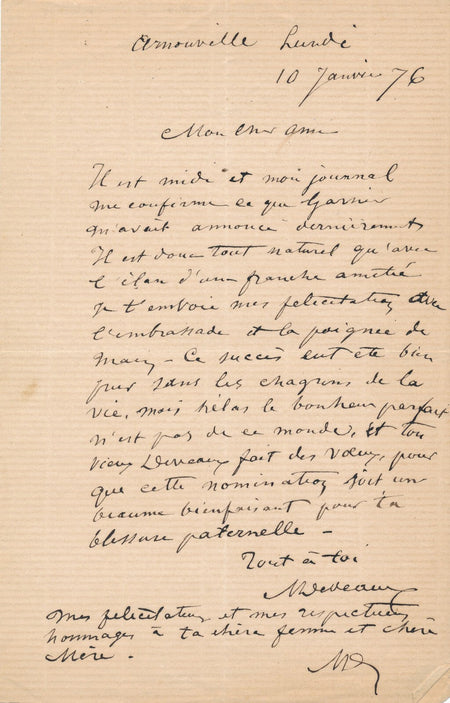 Arnouville Lundi
10 Janvier 76
Mon cher ami
Il est midi et mon journal
me confirme ce que Garnier
m'avait annoncé dernièrement
Il est donc tout naturel qu'avec
l'élan d'une franche amitié
je t'envoie mes felicitations avec
l'embrassade et la poignée de
main – Ce succès eut été bien
pur sans les chagrins de la
vie, mais hélas le bonheur parfait
n'est pas de ce monde, et ton
vieux Deveaux fait des vœux, pour
que cette nomination soit un
beaume bienfaisant pour ta
blessure paternelle –
Tout à toi
MDeveaux
Mes felicitations et mes respectueux
hommages à ta chère femme et chère
Mère.
MD